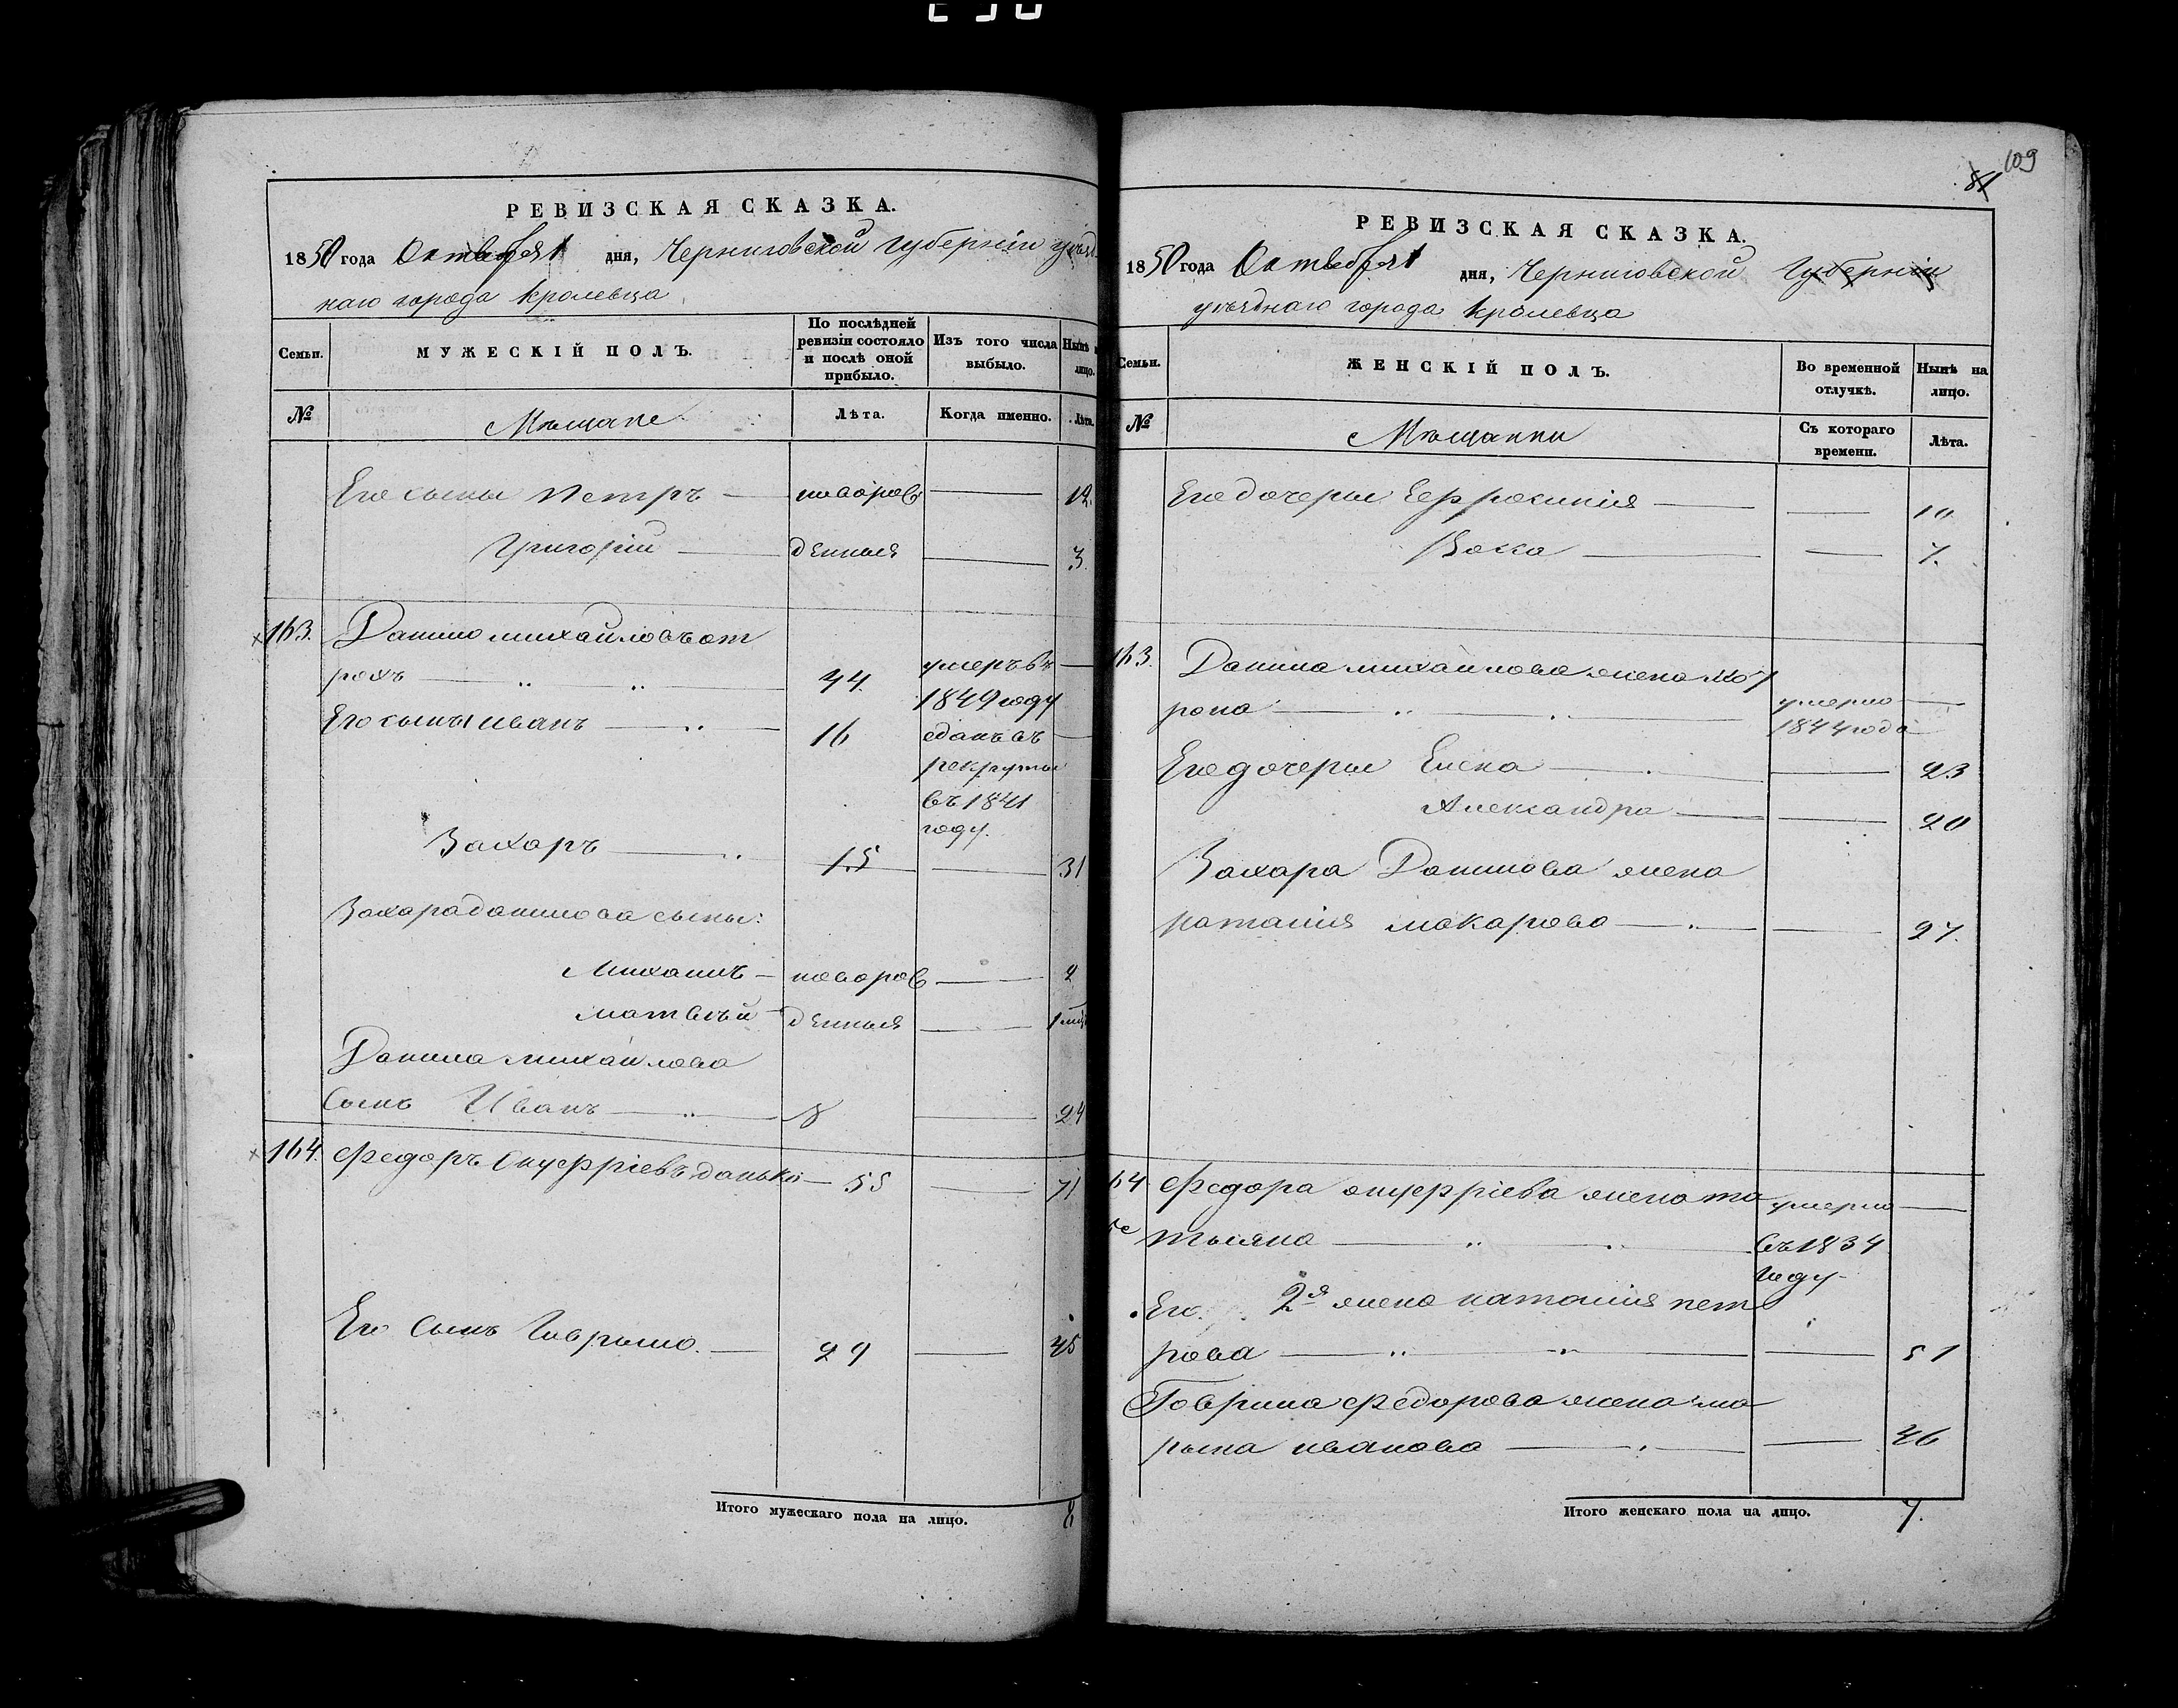 РЕВИЗСКАЯ СКАЗКА.
1850 года Октября 1 дня, Черниговской губерніи уѣзд
наго города Кролевца
Семьи. МУЖЕСКІЙ ПОЛЪ. По послѣдней ревизіи состояло и послѣ оной прибыло. Изъ того числа выбыло. Нынѣ на лицо.
№ Мѣщане Лѣта. Когда именно. Лѣта.
Его сыны Петръ новорож 12.
Григорій денныя 3.
163. Данило михайловъ от
рохъ 44. умеръ въ
1849 году
Его сыны иванъ 16 сданъ въ
рекруты
въ 1841
году.
Захаръ 15 31
Захара данилова сыны:
Михаилъ новорож 2
матвѣй денныя 1
Данила михайлова
сынъ Иванъ 8 24
164. Федоръ Онуфріевъ данько 55 71
Его сынъ Гаврыло. 29 45
Итого мужескаго пола на лицо. 8
109
81
РЕВИЗСКАЯ СКАЗКА.
1850 года Октября 1 дня, Черниговской Губерніи
уѣзднаго города Кролевца
Семьи. ЖЕНСКІЙ ПОЛЪ. Во временной отлучкѣ. Нынѣ на лицо.
№ Мѣщанки Съ котораго времени. Лѣта.
Его дочери Ефросинія 10
7.
163. Данила михайлова жена
умерла
1844 года
Его дочери Елена 23
Александра 20
Захара Данилова жена
наталія макарова 27.
64 Федора онуфріева жена та
тьяна умерла
въ 1834
году
Его 2я жена наталія пет
рова 51
Гаврила федорова жена ма
рына иванова 46
Итого женскаго пола на лицо. 7.